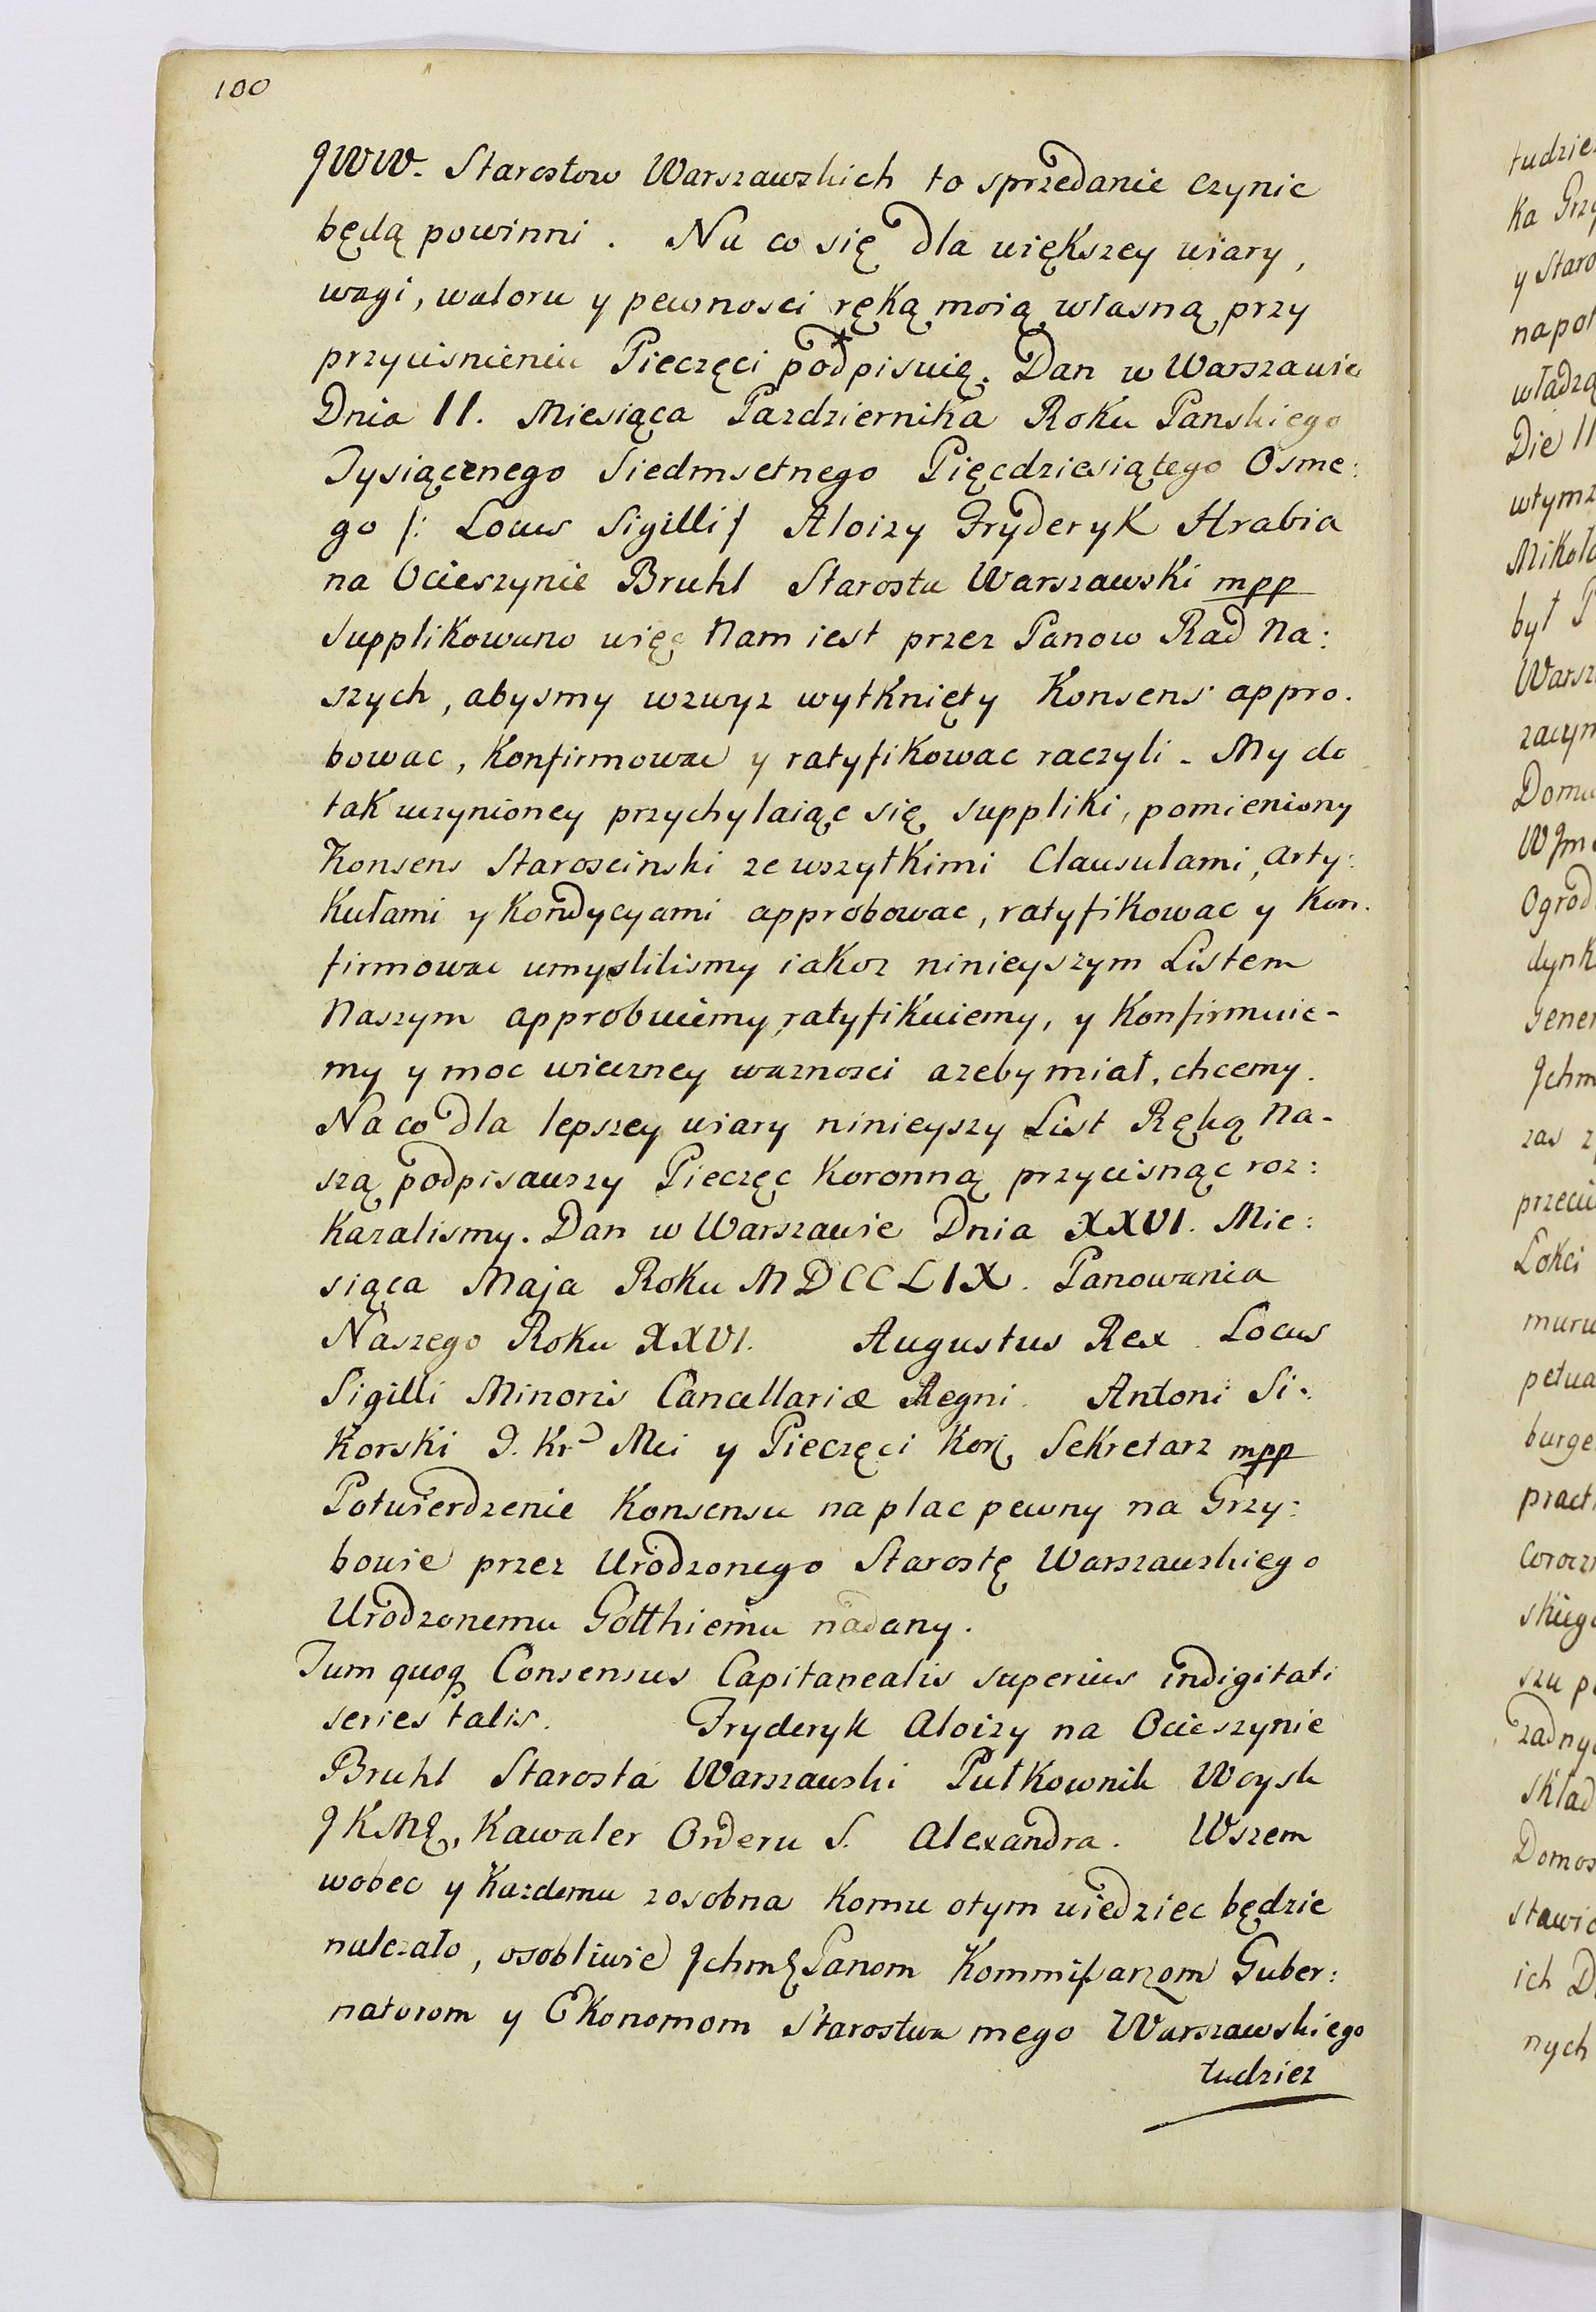 100
JWW. Starostow Warszawskich to sprzedanie czynic
będą powinni. Na co się dla większey wiary,
wagi, waloru y pewnosci ręką moią własną przy
przycisnieniu Pieczęci podpisuię. Dan w Warszawie
Dnia 11. Miesiąca Pazdziernika Roku Panskiego
Tysiącznego Siedmsetnego Pięcdziesiątego Osme:
go /: Locus Sigilli/ Aloizy Fryderyk Hrabia
na Ocieszynie Bruhl Starosta Warszawski mpp
Supplikowano więc Nam iest przez Panow Rad Na:
szych, abysmy wzwyz wytknięty Konsens appro.
bowac, Konfirmowac y ratyfikowac raczyli. My do
tak uczynioney przychylaiąc się suppliki, pomieniony
Konsens Staroscinski ze wszytkimi Clausulami, arty:
kułami y Kondycyami approbowac, ratyfikowac y Kon.
firmowac umyslilismy iakoz ninieyszym Listem
Naszym approbuiemy, ratyfikuiemy, y Konfirmuie-
my y moc wieczney waznosci azeby miał, chcemy.
Na co dla lepszey wiary ninieyszy List Ręką Na-
szą podpisawszy Pieczęc Koronną przycisnąc roz:
kazalismy. Dan w Warszawie Dnia XXVI. Mie:
siąca Maja Roku MDCCLIX. Panowania
Naszego Roku XXVI. Augustus Rex. Locus
Sigilli Minoris Cancellariæ Regni. Antoni Si:
korski J. Kr Mci y Pieczęci Kor Sekretarz mpp
Potwierdzenie Konsensu na plac pewny na Grzy:
bowie przez Urodzonego Starostę Warszawskiego
Urodzonemu Gotthiemu nadany.
Tum quoq Consensus Capitanealis superius indigitati
series talis. Fryderyk Aloizy na Ocieszynie
Bruhl Starosta Warszawski Pułkownik Woysk
JKMę, Kawaler Orderu S. Alexandra. Wszem
wobec y Kazdemu zosobna Komu otym wiedziec będzie
nalezało, osobliwie Jchmę Panom Kommissarzom Guber:
natorom y Ekonomom Starostwa mego Warszawskiego
tudziez